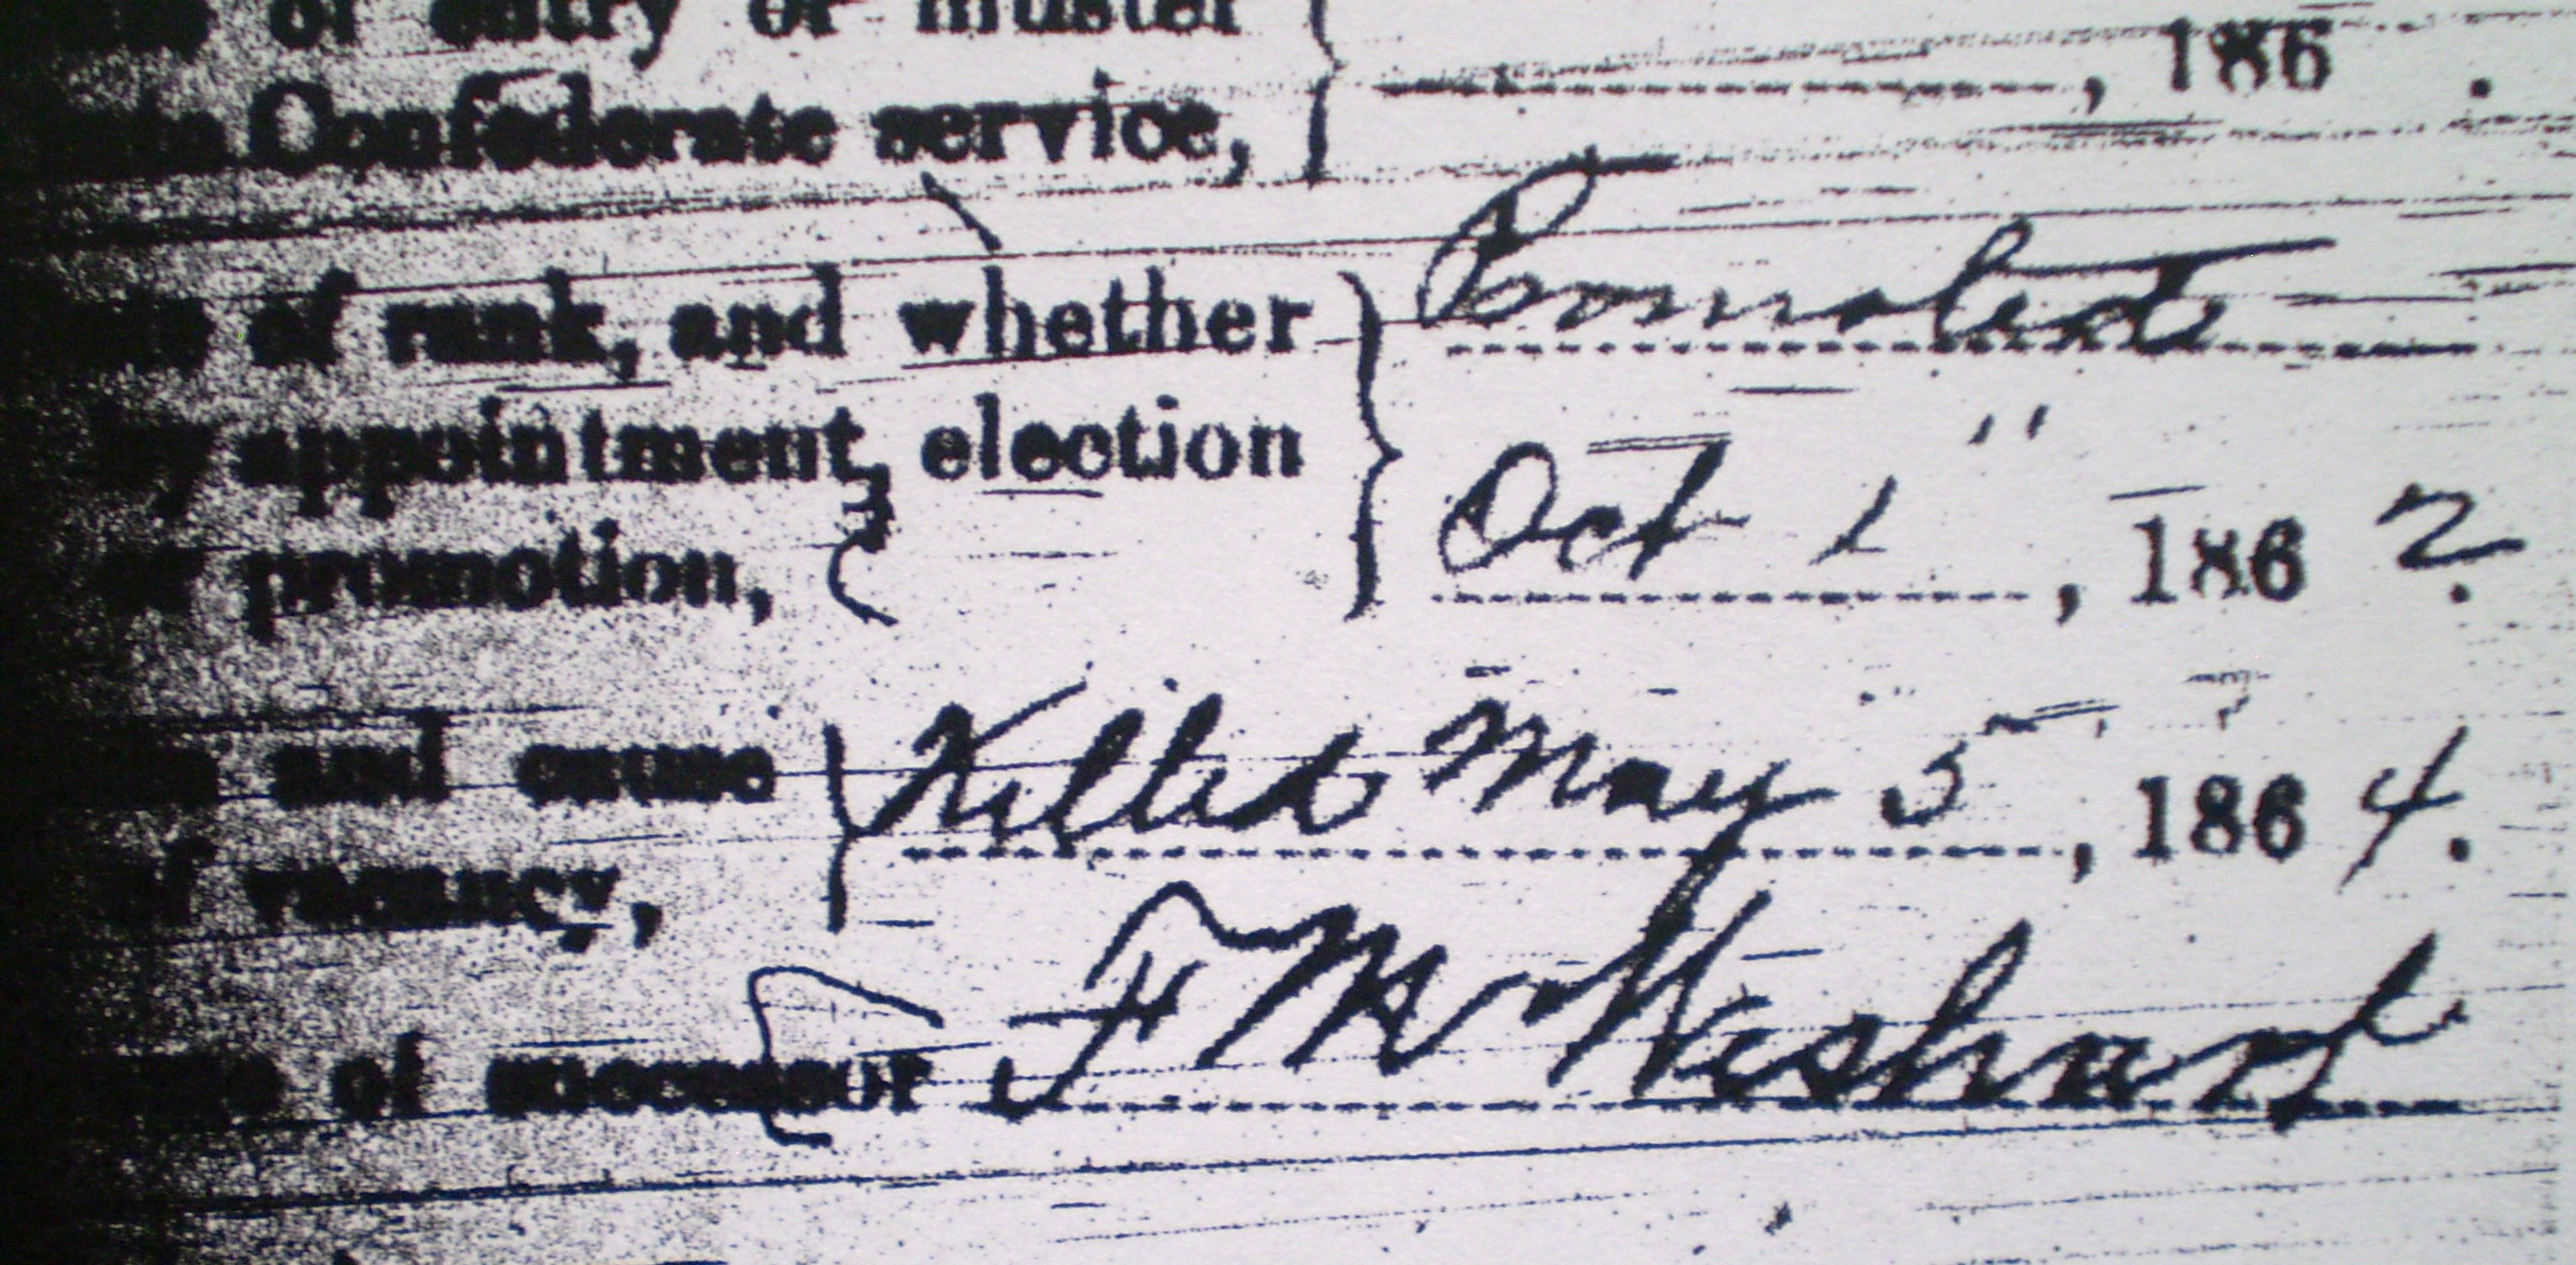 of entry or muster
Confederate service,
, 186 .
of rank, and whether
by appointment, election
or promotion,
Promoted
Oct 1 " , 186 2.
and cause
of vacancy,
Killed May 5 , 186 4.
of successor F M Wishart